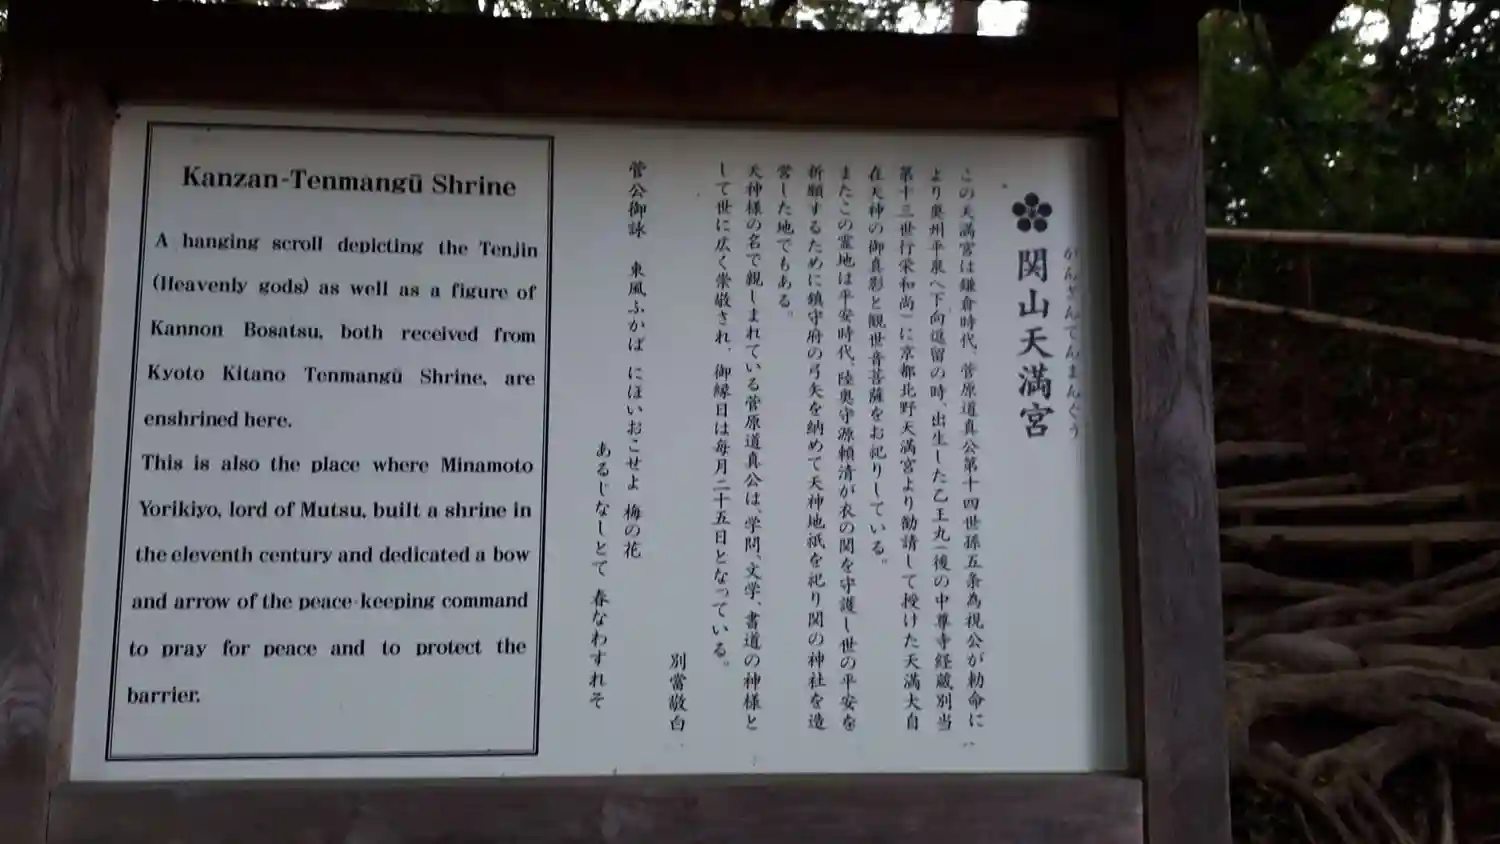 Kanzan-Tenmangū Shrine
A hanging scroll depicting the Tenjin
(Heavenly gods) as well as a figure of
Kannon Bosatsu, both received from
Kyoto Kitano Tenmangū Shrine, are
enshrined here.
This is also the place where Minamoto
Yorikiyo, lord of Mutsu, built a shrine in
the eleventh century and dedicated a bow
and arrow of the peace-keeping command
to pray for peace and to protect the
barrier.
関山天満宮
かんざんてんまんぐう
この天満宮は鎌倉時代、菅原道真公第十四世孫五条為視公が勅命に
より奥州平泉へ下向逗留の時、出生した乙王丸（後の中尊寺経蔵別当
第十三世行栄和尚）に京都北野天満宮より勧請して授けた天満大自
在天神の御真影と観世音菩薩をお祀りしている。
またこの霊地は平安時代、陸奥守源頼清が衣の関を守護し世の平安を
祈願するために鎮守府の弓矢を納めて天神地祇を祀り関の神社を造
営した地でもある。
天神様の名で親しまれている菅原道真公は、学問、文学、書道の神様と
して世に広く崇敬され、御縁日は毎月二十五日となっている。
別當敬白
菅公御詠　東風ふかば にほいおこせよ 梅の花
あるじなしとて 春なわすれそ